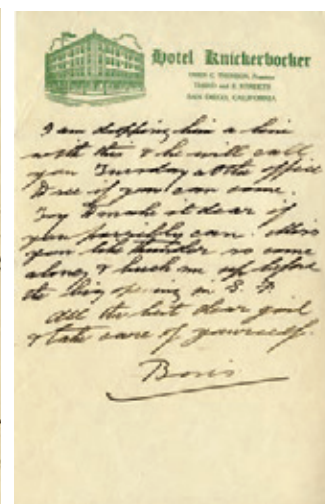 Hotel Knickerbocker
THIRD and E STREETS
SAN DIEGO, CALIFORNIA
I am dropping him a line
with this & he will call
you Tuesday at the office
to see if you can come.
Try & make it dear if
you possibly can. Miss
you like thunder so come
along & buck me up before
the big opening in S. F.
All the best dear girl
& take care of yourself.
Boris